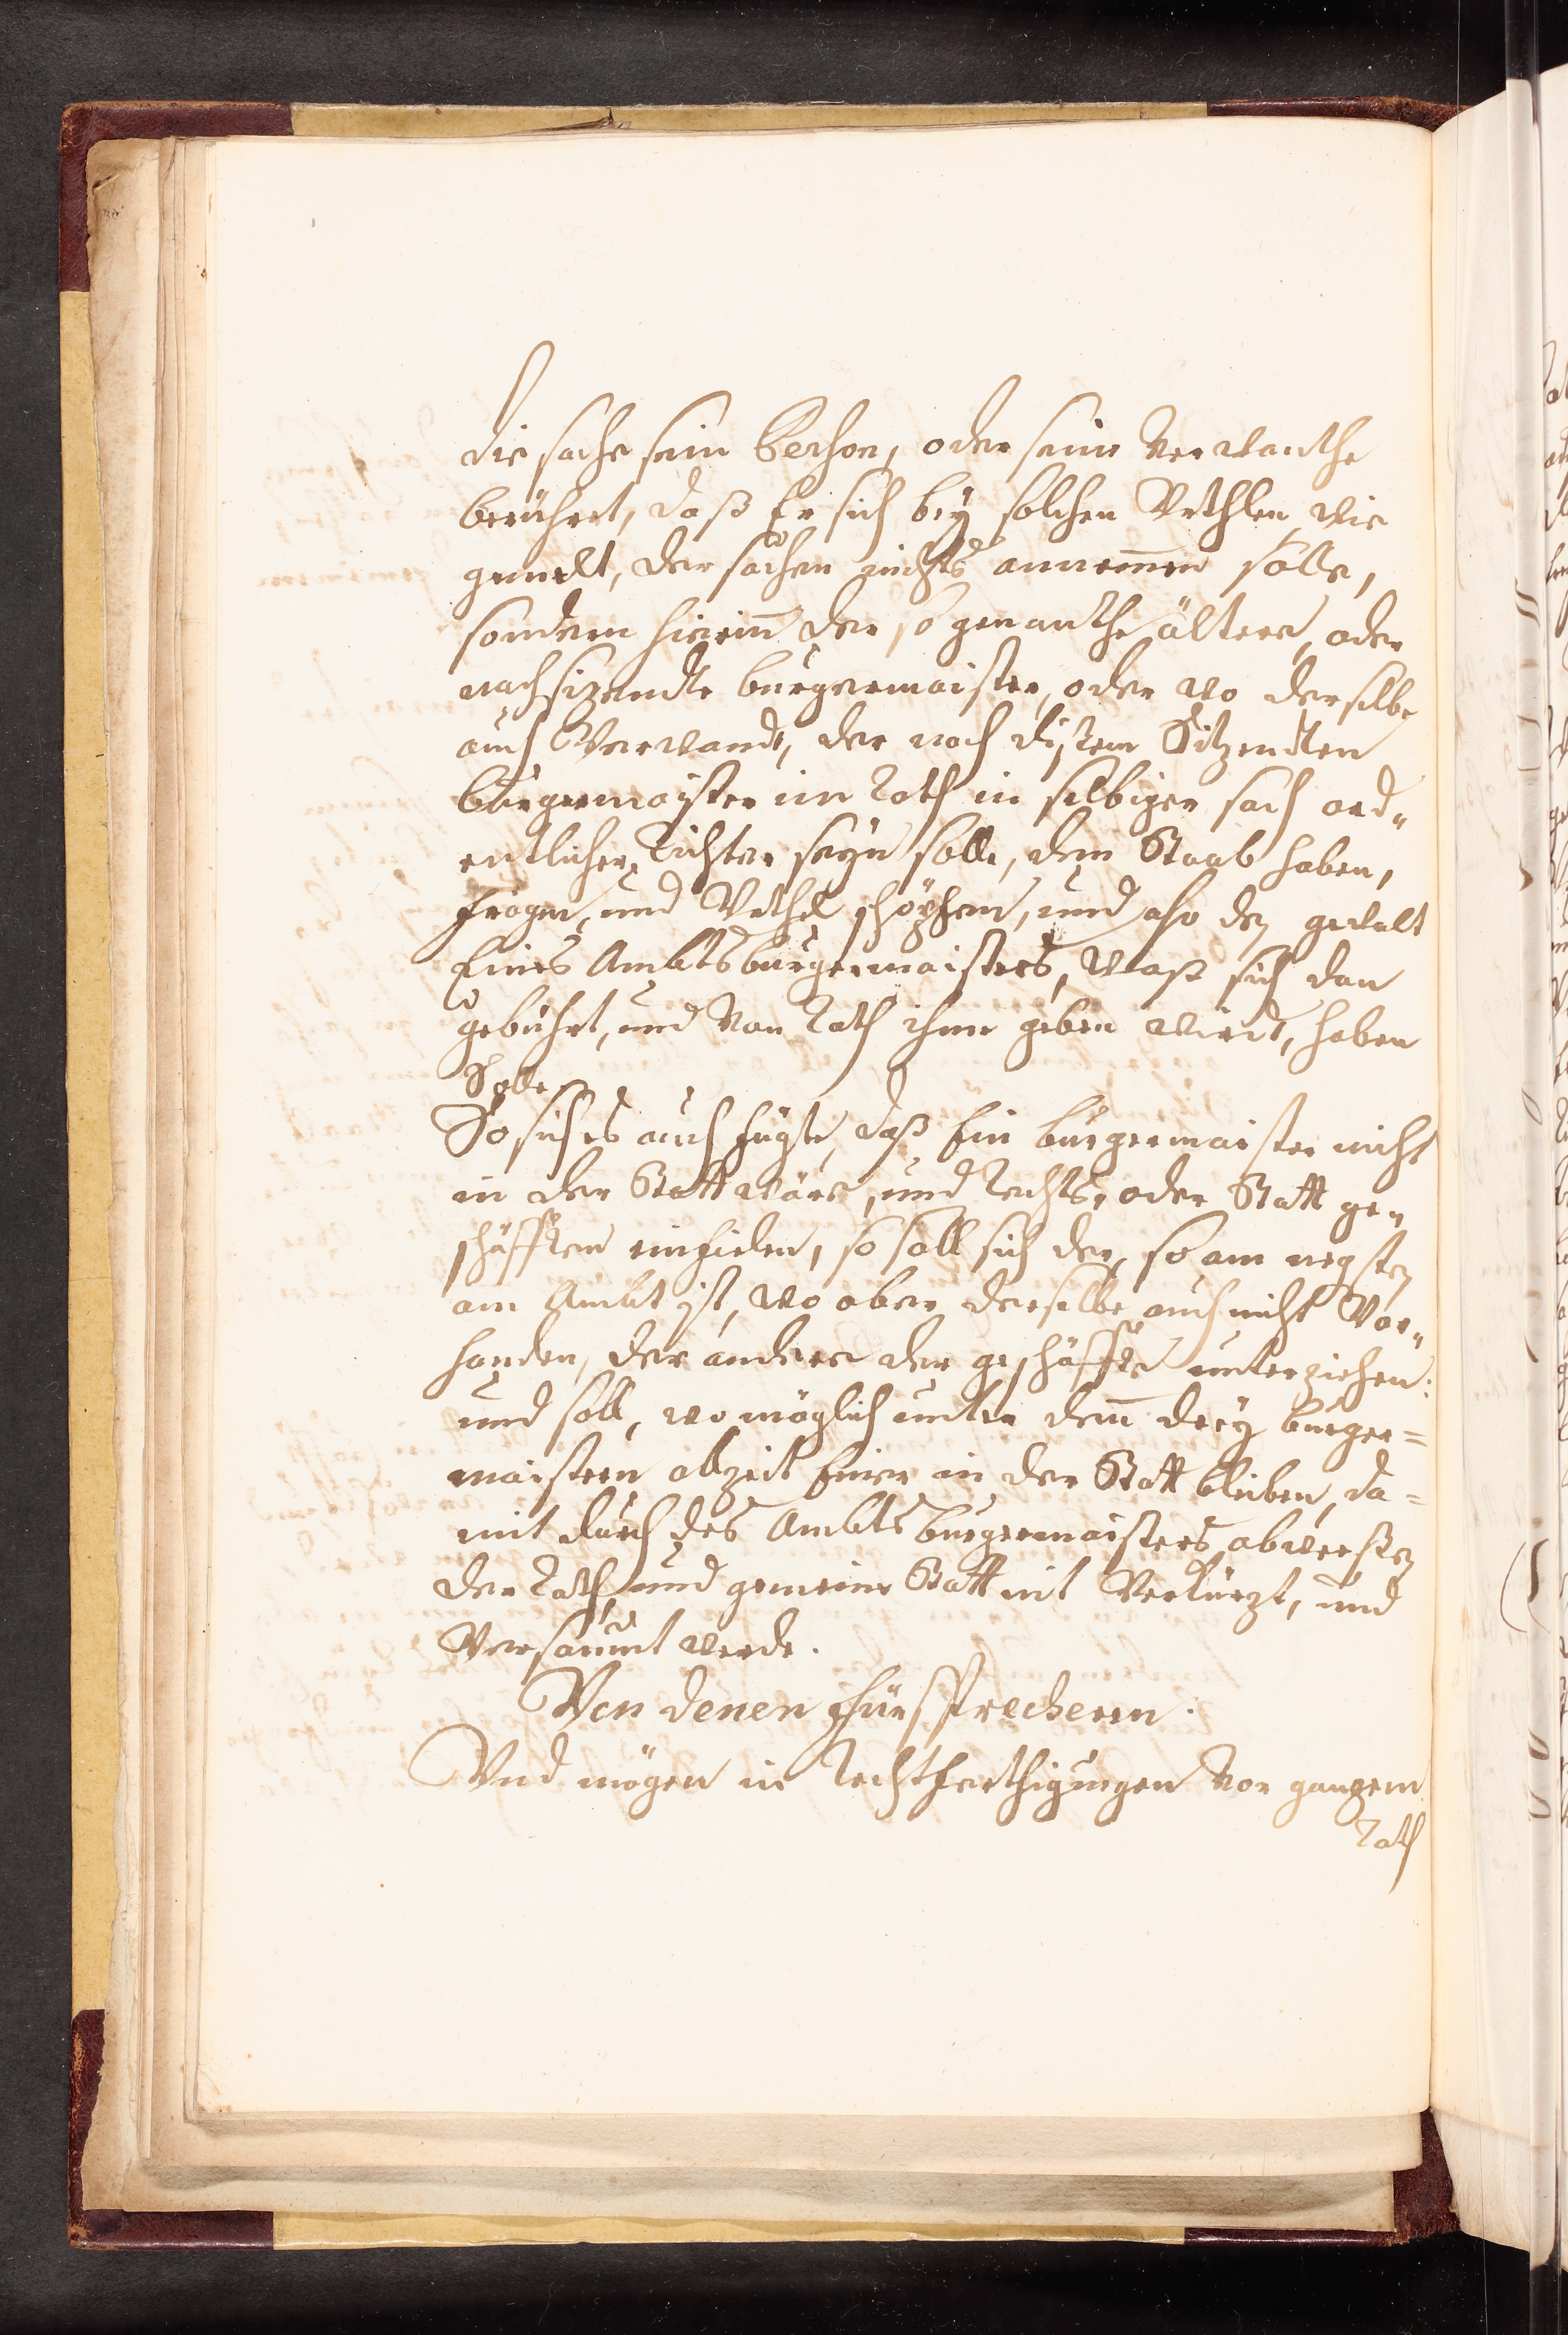 die sache sein Berson, oder seine Verwanthe
berühret, daß Er sich bey solchen Urthlen, wie
gemelt, der sachen nichts annem̄en solle,
sondern hierin̄ der so genanthe ältere, oder
nachsizendte burgermaister, oder wo derselbe
auch Verwandt, der nach disem Sitzendten
burgermaister im Rath in selbiger sach ord„
entlicher Richter seyn solle, dem Staab haben,
fragen, und Urthel schöpfen, und also den gewalt
Eines Ambtsburgermaisters, waß sich dan
gebührt, und von Rath ihme geben wirdt, haben
Solle.
So sich es auch fügte, daß Ein burgermaister nicht
in der Statt wäre, und Rechts, oder Statt ge„
schäfften einfielen, so soll sich der, so am negsten
am Ambt ist, wo aber derselbe auch nicht Vor„
handen, der andere der geschäffte unterziehen:
und soll, wo möglich unter den̄ drey burger=
maistern allzeit Einer in der Statt bleiben, da=
mit durch des Ambts burgermaisters abwessen
der Rath, und gemeine Statt nit Verkürzt, und
Versäumt werde.
Von denen Fürsprecheren.
Und mögen in Rechtferthigungen vor ganzem
Rath